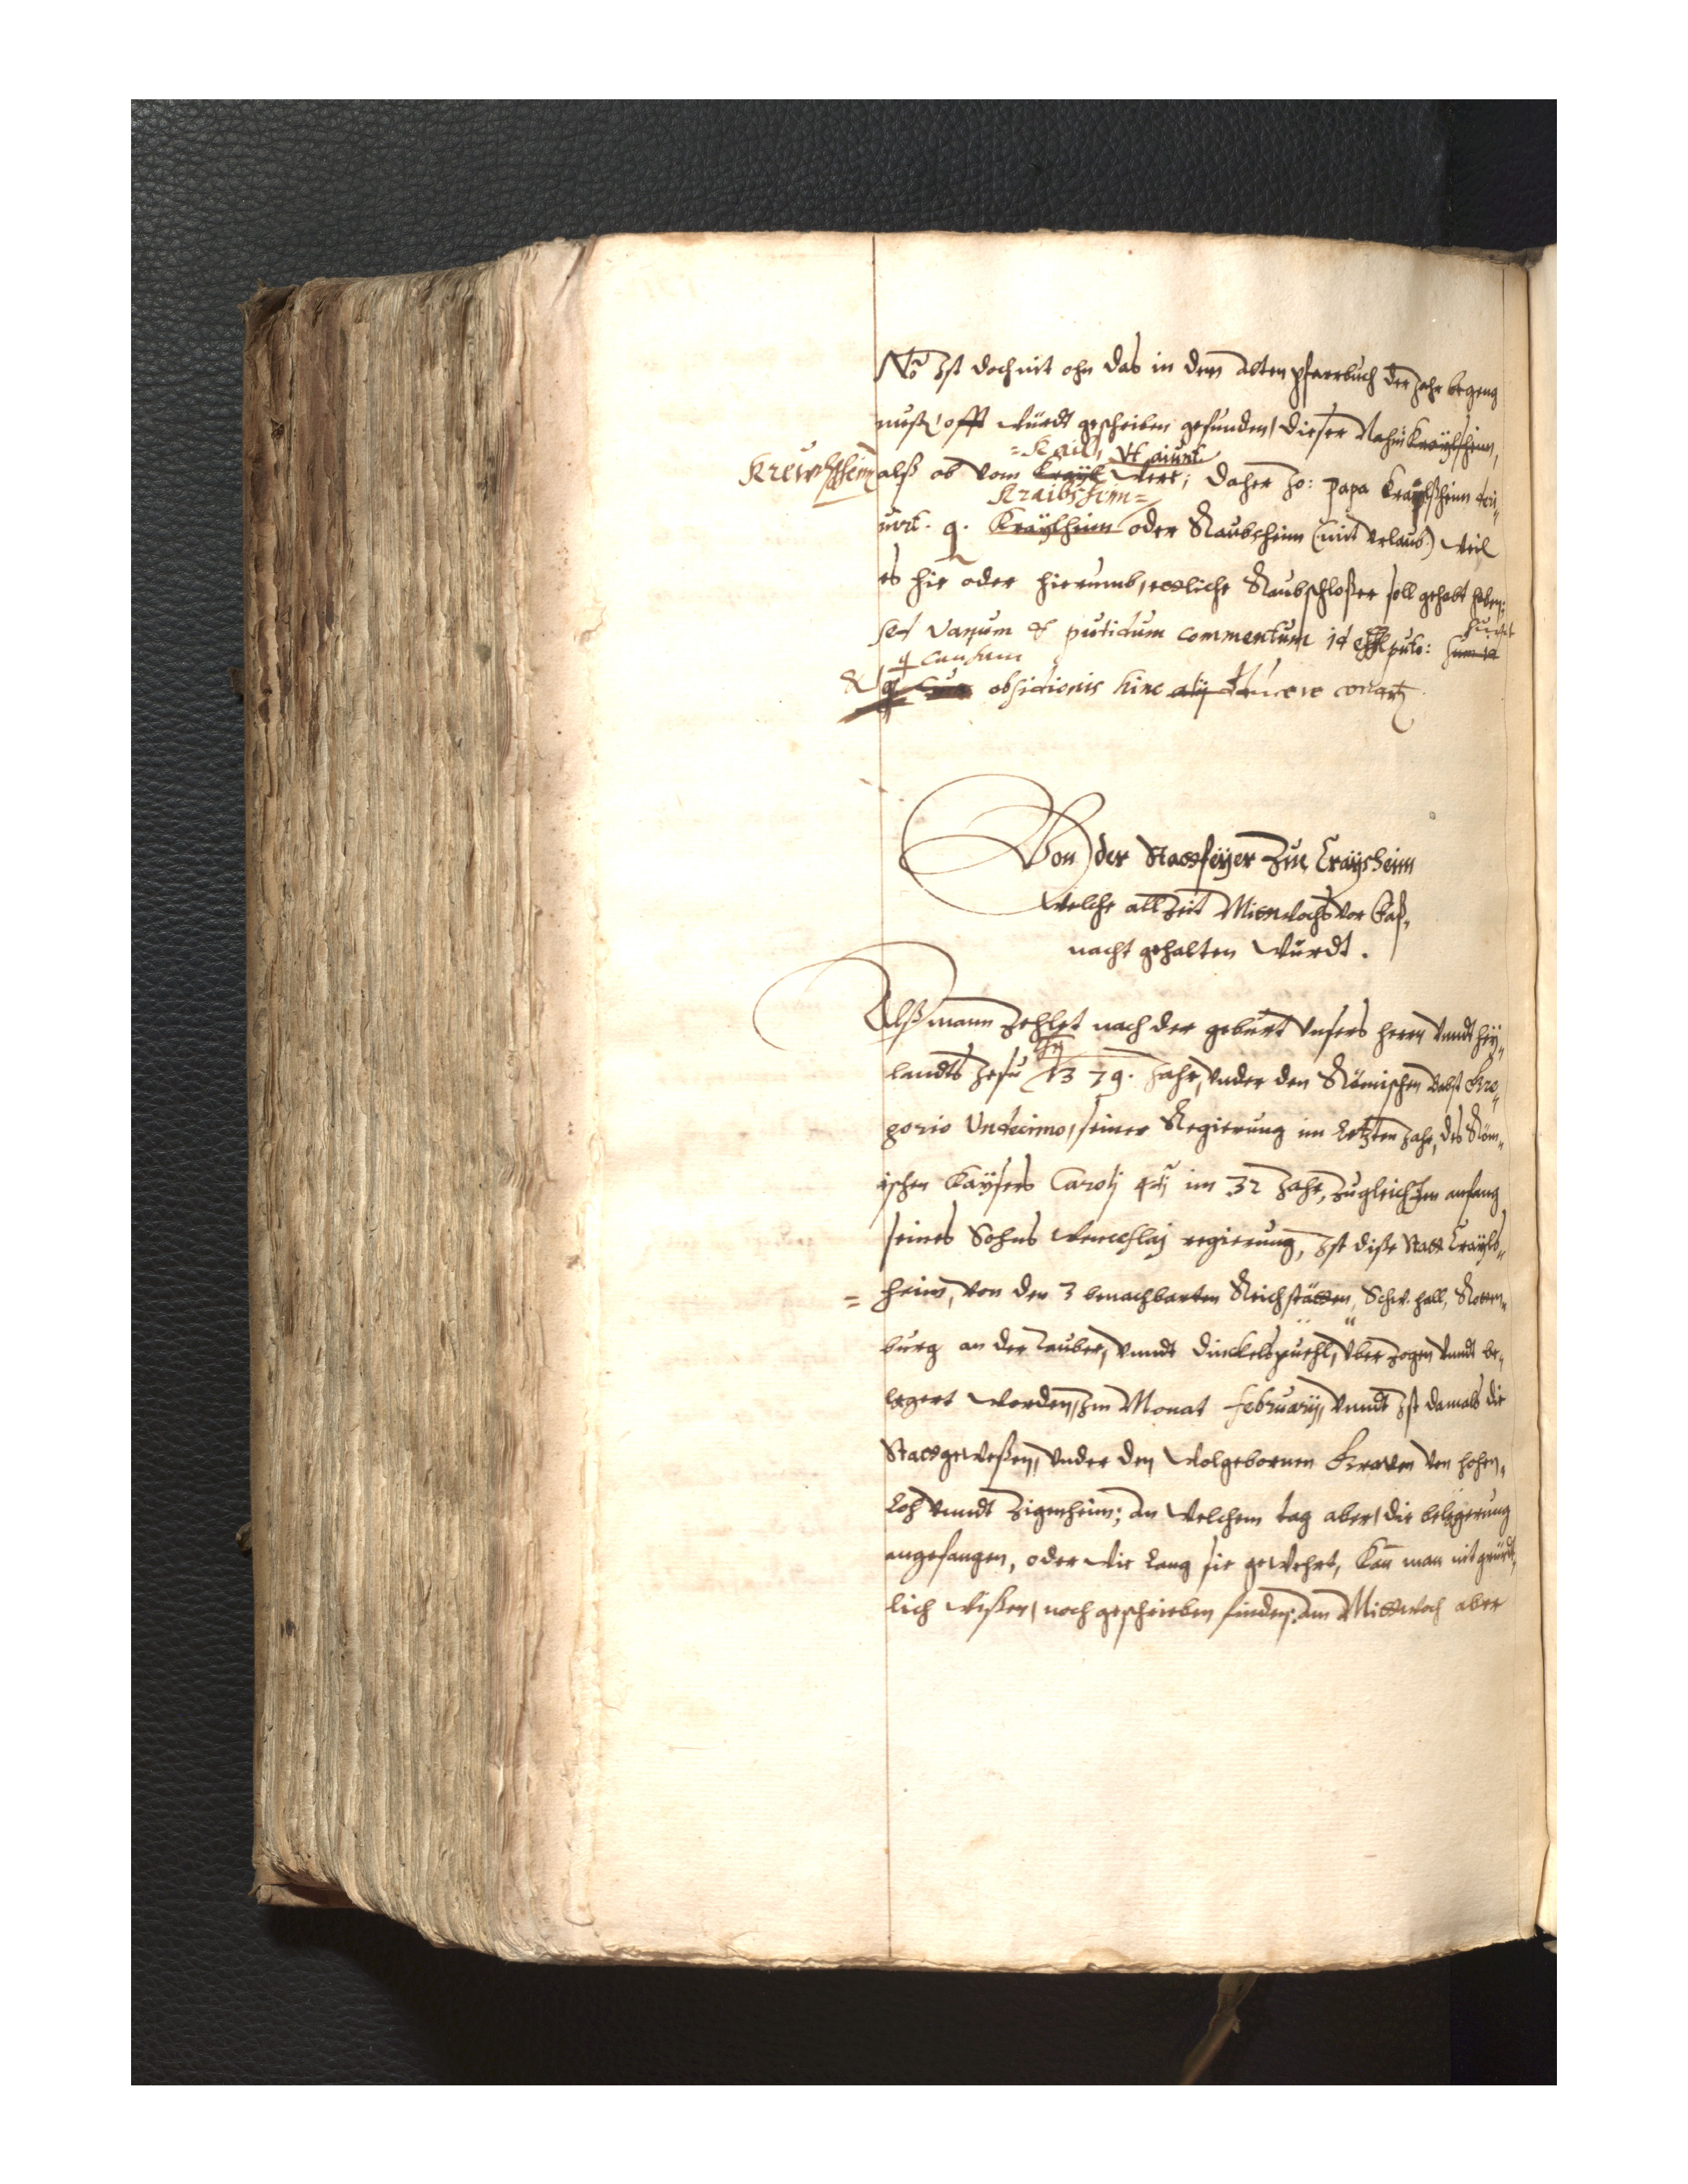 Nō Ist doch nit ohn das in dem alten pfarrbuch der Jahr begeng
nußs, offt würdt geschrieben gefunden, dieser Nahm Kraÿlsheim,
Krewelsheim
= Kail, Vt aiunt
alß ob vom Kraÿl wers; daher Jo: Papa Kraÿlßheim
Kraibsheim =
q. Kraÿlheim oder Raubheim (mit vrlaub) weil
es hie oder hierumb, ettliche Raubschloßer soll gehabt haben:
sed vanum & putidum commentum id esse puto:
causam
& obsidionis hinc ducere
Von der Stattfeÿer zue Craÿlsheim
Welche allzeit Mittwochs vor Faß„
nacht gehalten würdt.
Alß mann zehlet nach der geburt vnsers herrn vnndt heÿ„
landts Jesu 1379. Jahr, vnder den Römischen Babst Gre„
gorio Vndecimo, seiner Regierung im letzten Jahr, des Röm„
ischen Kaÿsers Carolj 4tj im 32 Jahr, zugleich Im anfang
seines Sohns Wenceslaj regierung, Ist diße Statt Craÿls„
= heim, von den 3 benachbarten Reichstätten, Schw. hall, Rotten„
burg an der Tauber, vnndt Dinckelspuehl, vberzogen vnndt be„
legert worden, Im Monat Februarÿ, vnndt Ist damals die
Statt geweßen, vnder den Wolgebornen Graven von Hohen„
Loh vnndt Zigenheim; an welchem tag aber, die belegerung
angefangen, oder wie lang sie gewehrt, kan man nit gründt„
lich wißen, noch geschrieben finden; am Mittwoch aber